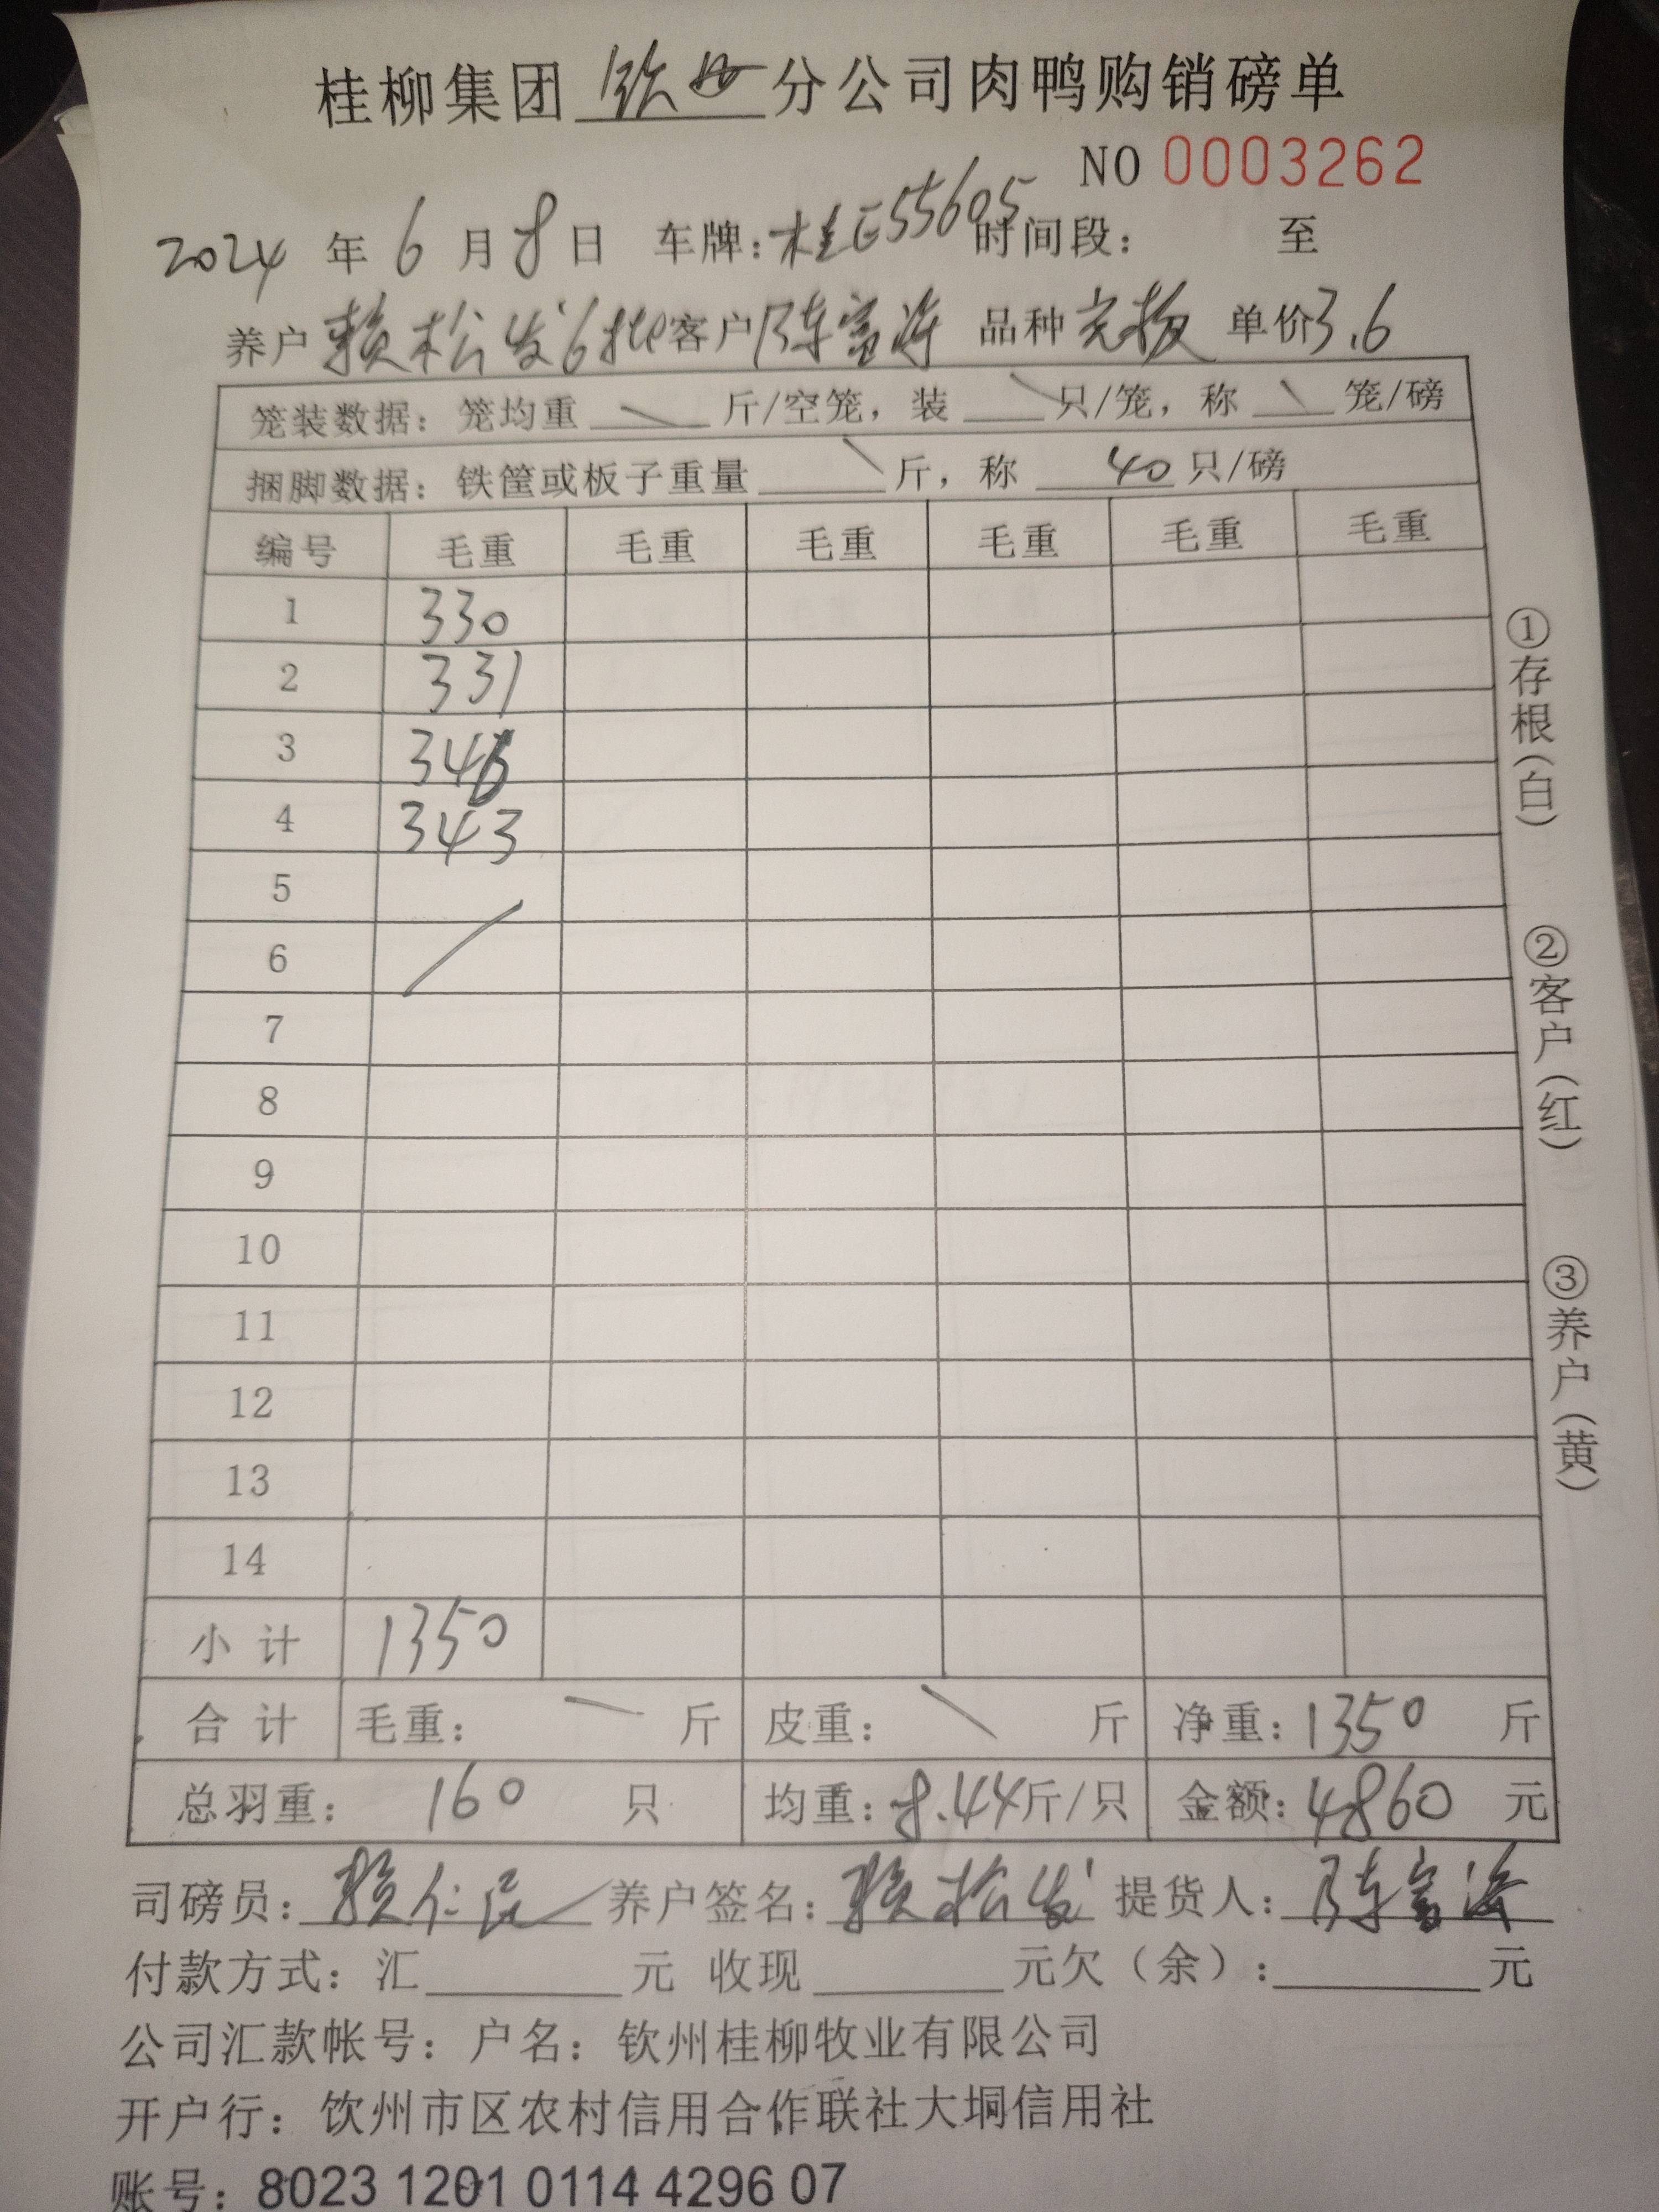 桂柳集团 钦州 分公司肉鸭购销磅单
NO 0003262
2024 年 6 月 8 日 车牌：桂E55605 时间段： 至
养户 赖松发6批 客户 陈富海 品种 克板 单价 3.6
笼装数据：笼均重 \ 斤/空笼，装 \ 只/笼，称 \ 笼/磅
捆脚数据：铁筐或板子重量 \ 斤，称 40 只/磅
编号 毛重 毛重 毛重 毛重 毛重 毛重
1 330
2 331
3 346
4 343
5
6
7
8
9
10
11
12
13
14
小计 1350
合计 毛重： \ 斤 皮重： \ 斤 净重：1350 斤
总羽重： 160 只 均重：8.44斤/只 金额：4860 元
司磅员：赖仁民 养户签名：赖松发 提货人：陈富海
付款方式：汇 元 收现 元欠（余）： 元
公司汇款帐号：户名：钦州桂柳牧业有限公司
开户行：饮州市区农村信用合作联社大垌信用社
账号：8023 1201 0114 4296 07
①存根（白）
②客户（红）
③养户（黄）